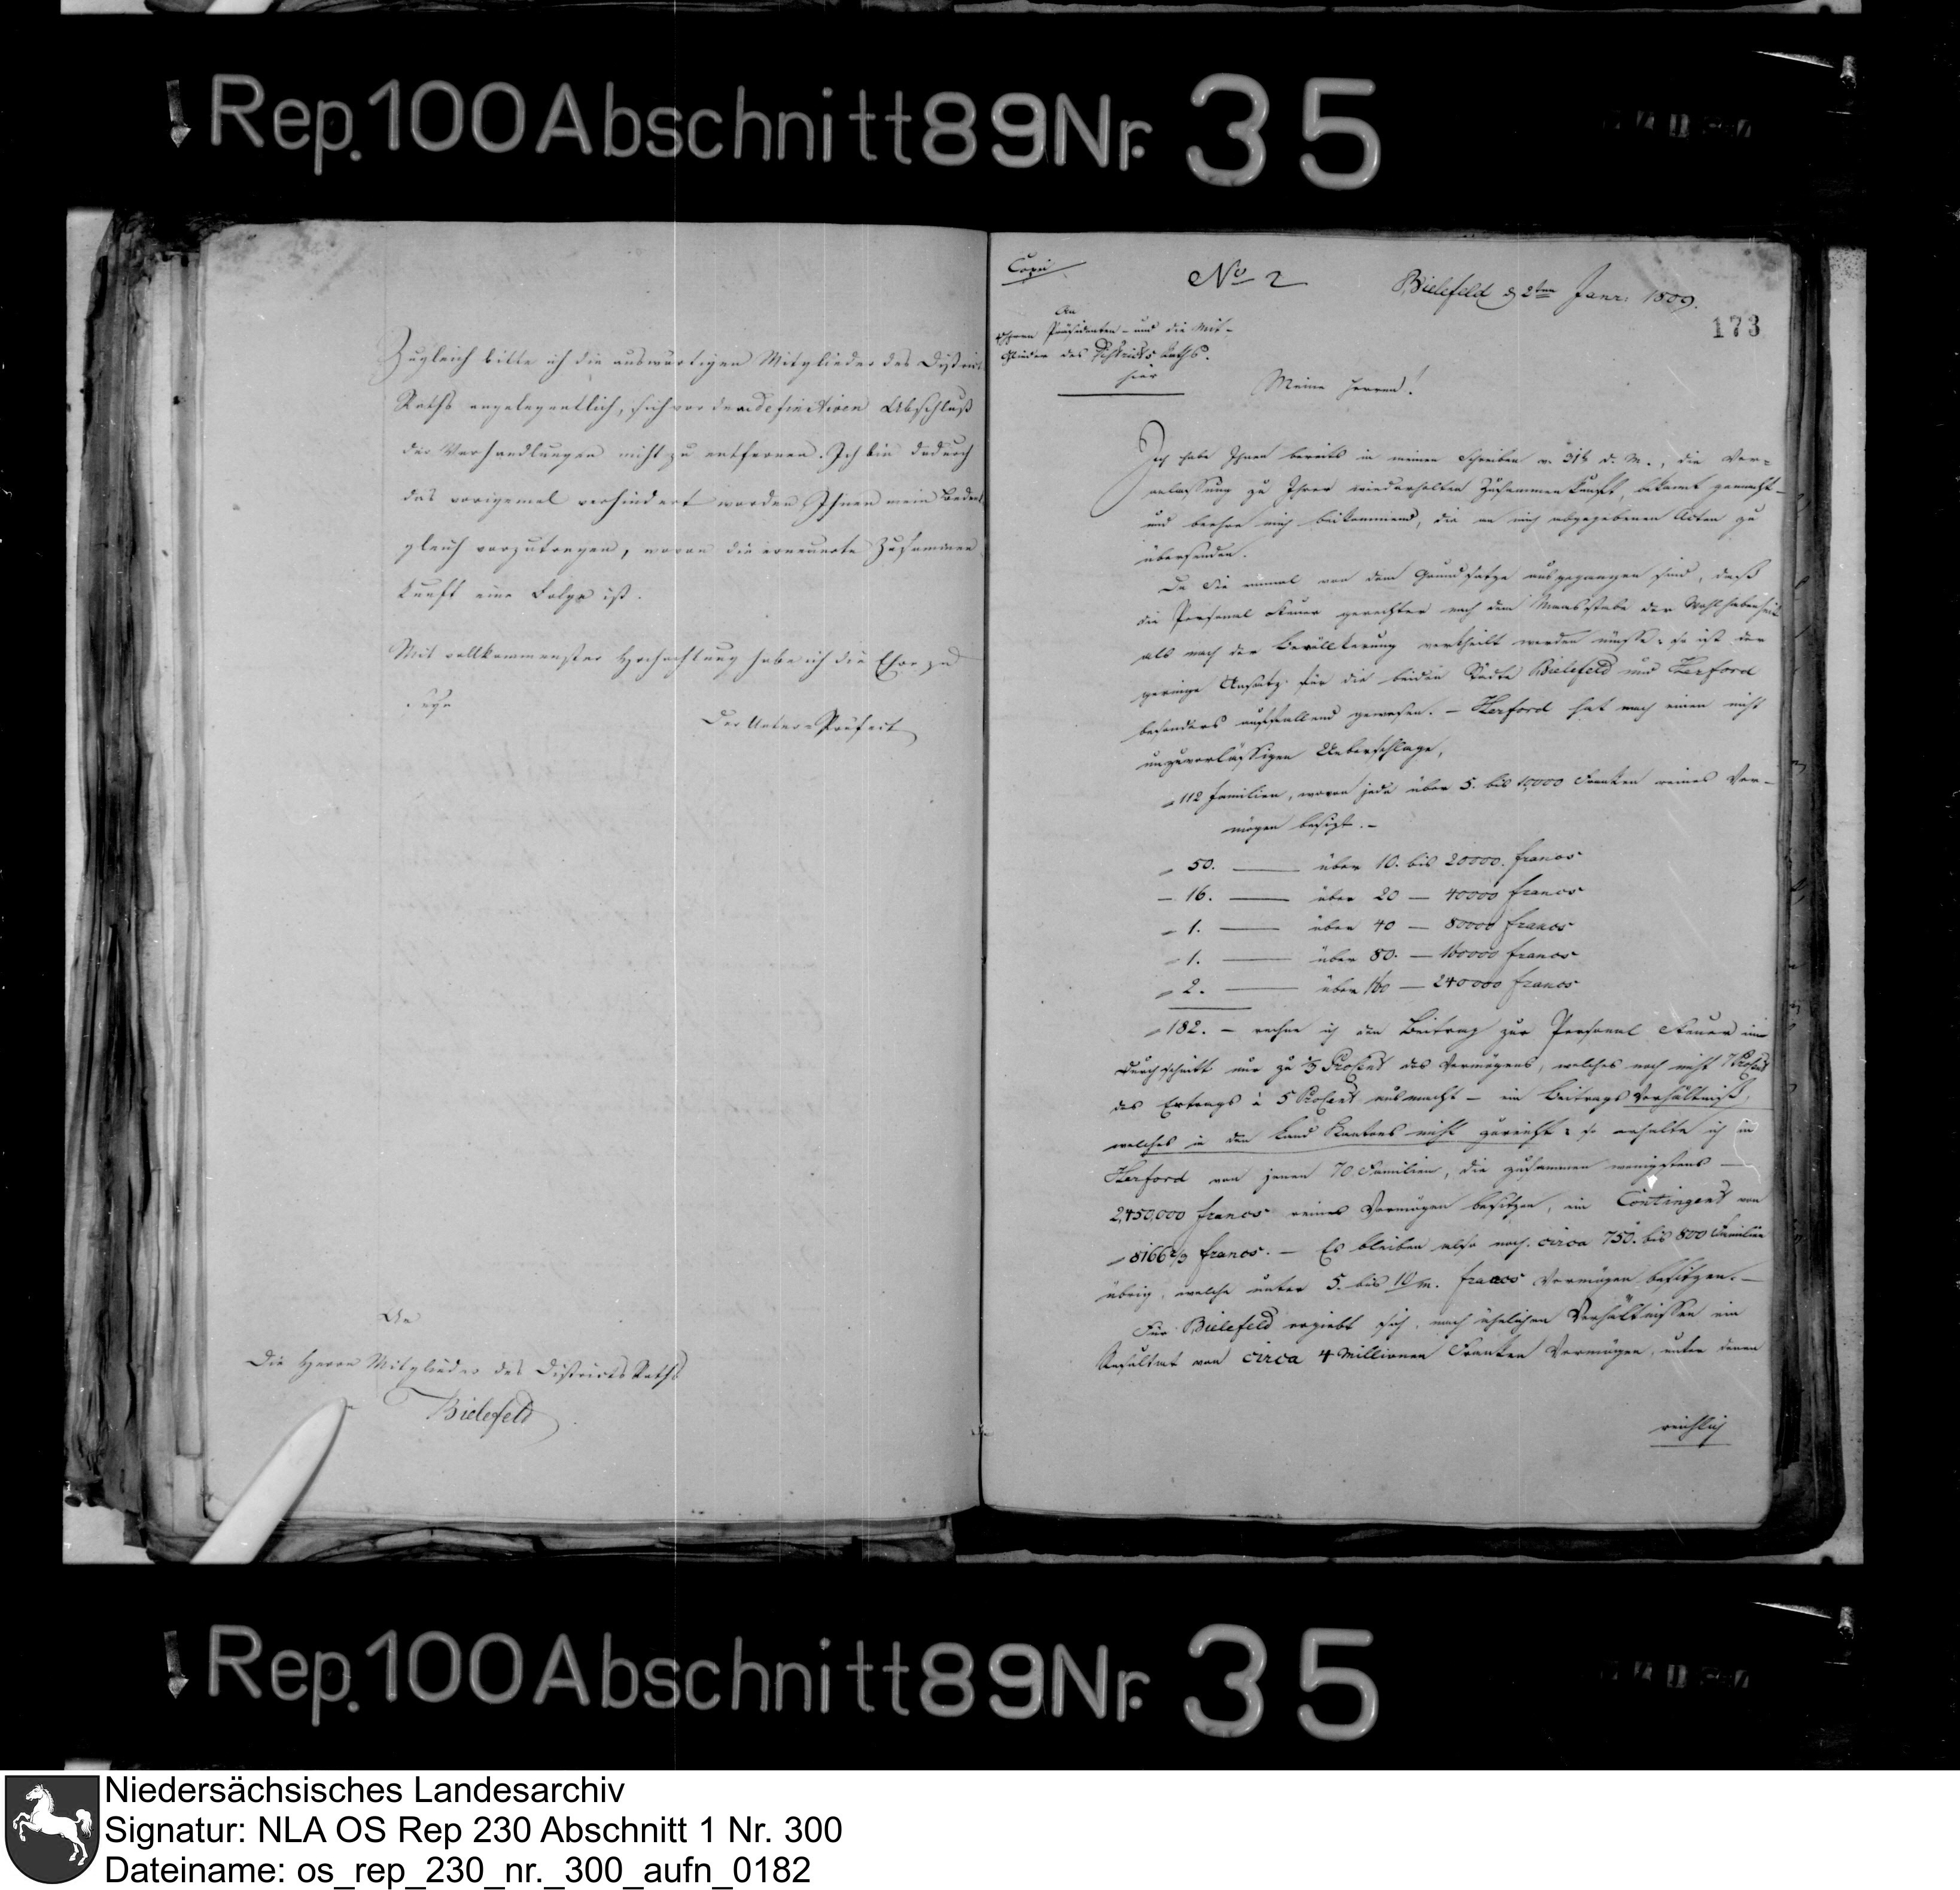 Rep. 100 Abschnitt 89 Nr. 35
Zugleich bitte ich die auswärtigen Mitglieder des District
Raths angelegentlich, sich vor dem definitiven Abschluß
der Verhandlungen nicht zu entfernen. Ich bin dadurch
das vorigemal verhindert worden Ihnen mein Beden
gleich vorzutragen, wovon die erneuerte Zusammen
kunft eine Folge ist.
Mit vollkommenster Hochachtung habe ich die Ehre zu
seyn
Der Unter-Präfect
An
Die Herrn Mitglieder des Districts Raths
Bielefeld
Copia
No 2
Bielefeld d 2ten Janr. 1809.
173
An
Herrn Präsidenten - und die Mit-
Glieder des Districts Raths.
hier
Meine Herren!
Ich habe Ihnen bereits in meinem Schreiben v. 31t d. M., die Ver-
anlassung zu Ihrer wiederholten Zusammenkunft, bekannt gemacht -
und beehre mich beikommend, die an mich abgegebenen Acten zu
übersenden.
Da Sie einmal von dem Grundsatze ausgegangen sind, daß
die Personal Steuer gerechter nach dem Maasstabe der Wohlhabenheit
als nach der Bevölkerung vertheilt werden müsse: so ist der
geringe Ansatz für die beiden Städte Bielefeld und Herford
besonders auffallend gewesen. - Herford hat nach einem nicht
unzuverlässigen Ueberschlage,
" 112 Familien, wovon jede über 5. bis 10,000 Franken reines Ver-
mögen besitzt. -
" 50. — über 10. bis 20000. francs
— 16. — über 20 — 40000 francs
" 1. — über 40 — 80000 francs
" 1. — über 80. — 160000 francs
" 2. — über 160 — 240000 francs
" 182. - rechne ich den Beitrag zur Personal Steuer im
Durchschnitt nur zu 1/3 Procent des Vermögens, welches noch nicht 7 Procent
des Ertrags à 5 Procent ausmacht - ein Beitrags Verhältniß,
welches in den Land Kantons nicht zureicht: so erhalte ich in
Herford von jenen 70 Familien, die zusammen wenigstens —
2,450,000 francs reines Vermögen besitzen, ein Contingent von
" 8166 2/3 francs. - Es bleiben also noch circa 750. bis 800 Familien
übrig, welche unter 5. bis 10/m. francs Vermögen besitzen. -
Für Bielefeld ergiebt sich, nach ähnlichen Verhältnissen ein
Resultat von circa 4 Millionen Franken Vermögen, unter denen
reichlich
Rep. 100 Abschnitt 89 Nr. 35
Niedersächsisches Landesarchiv
Signatur: NLA OS Rep 230 Abschnitt 1 Nr. 300
Dateiname: os_rep_230_nr._300_aufn_0182